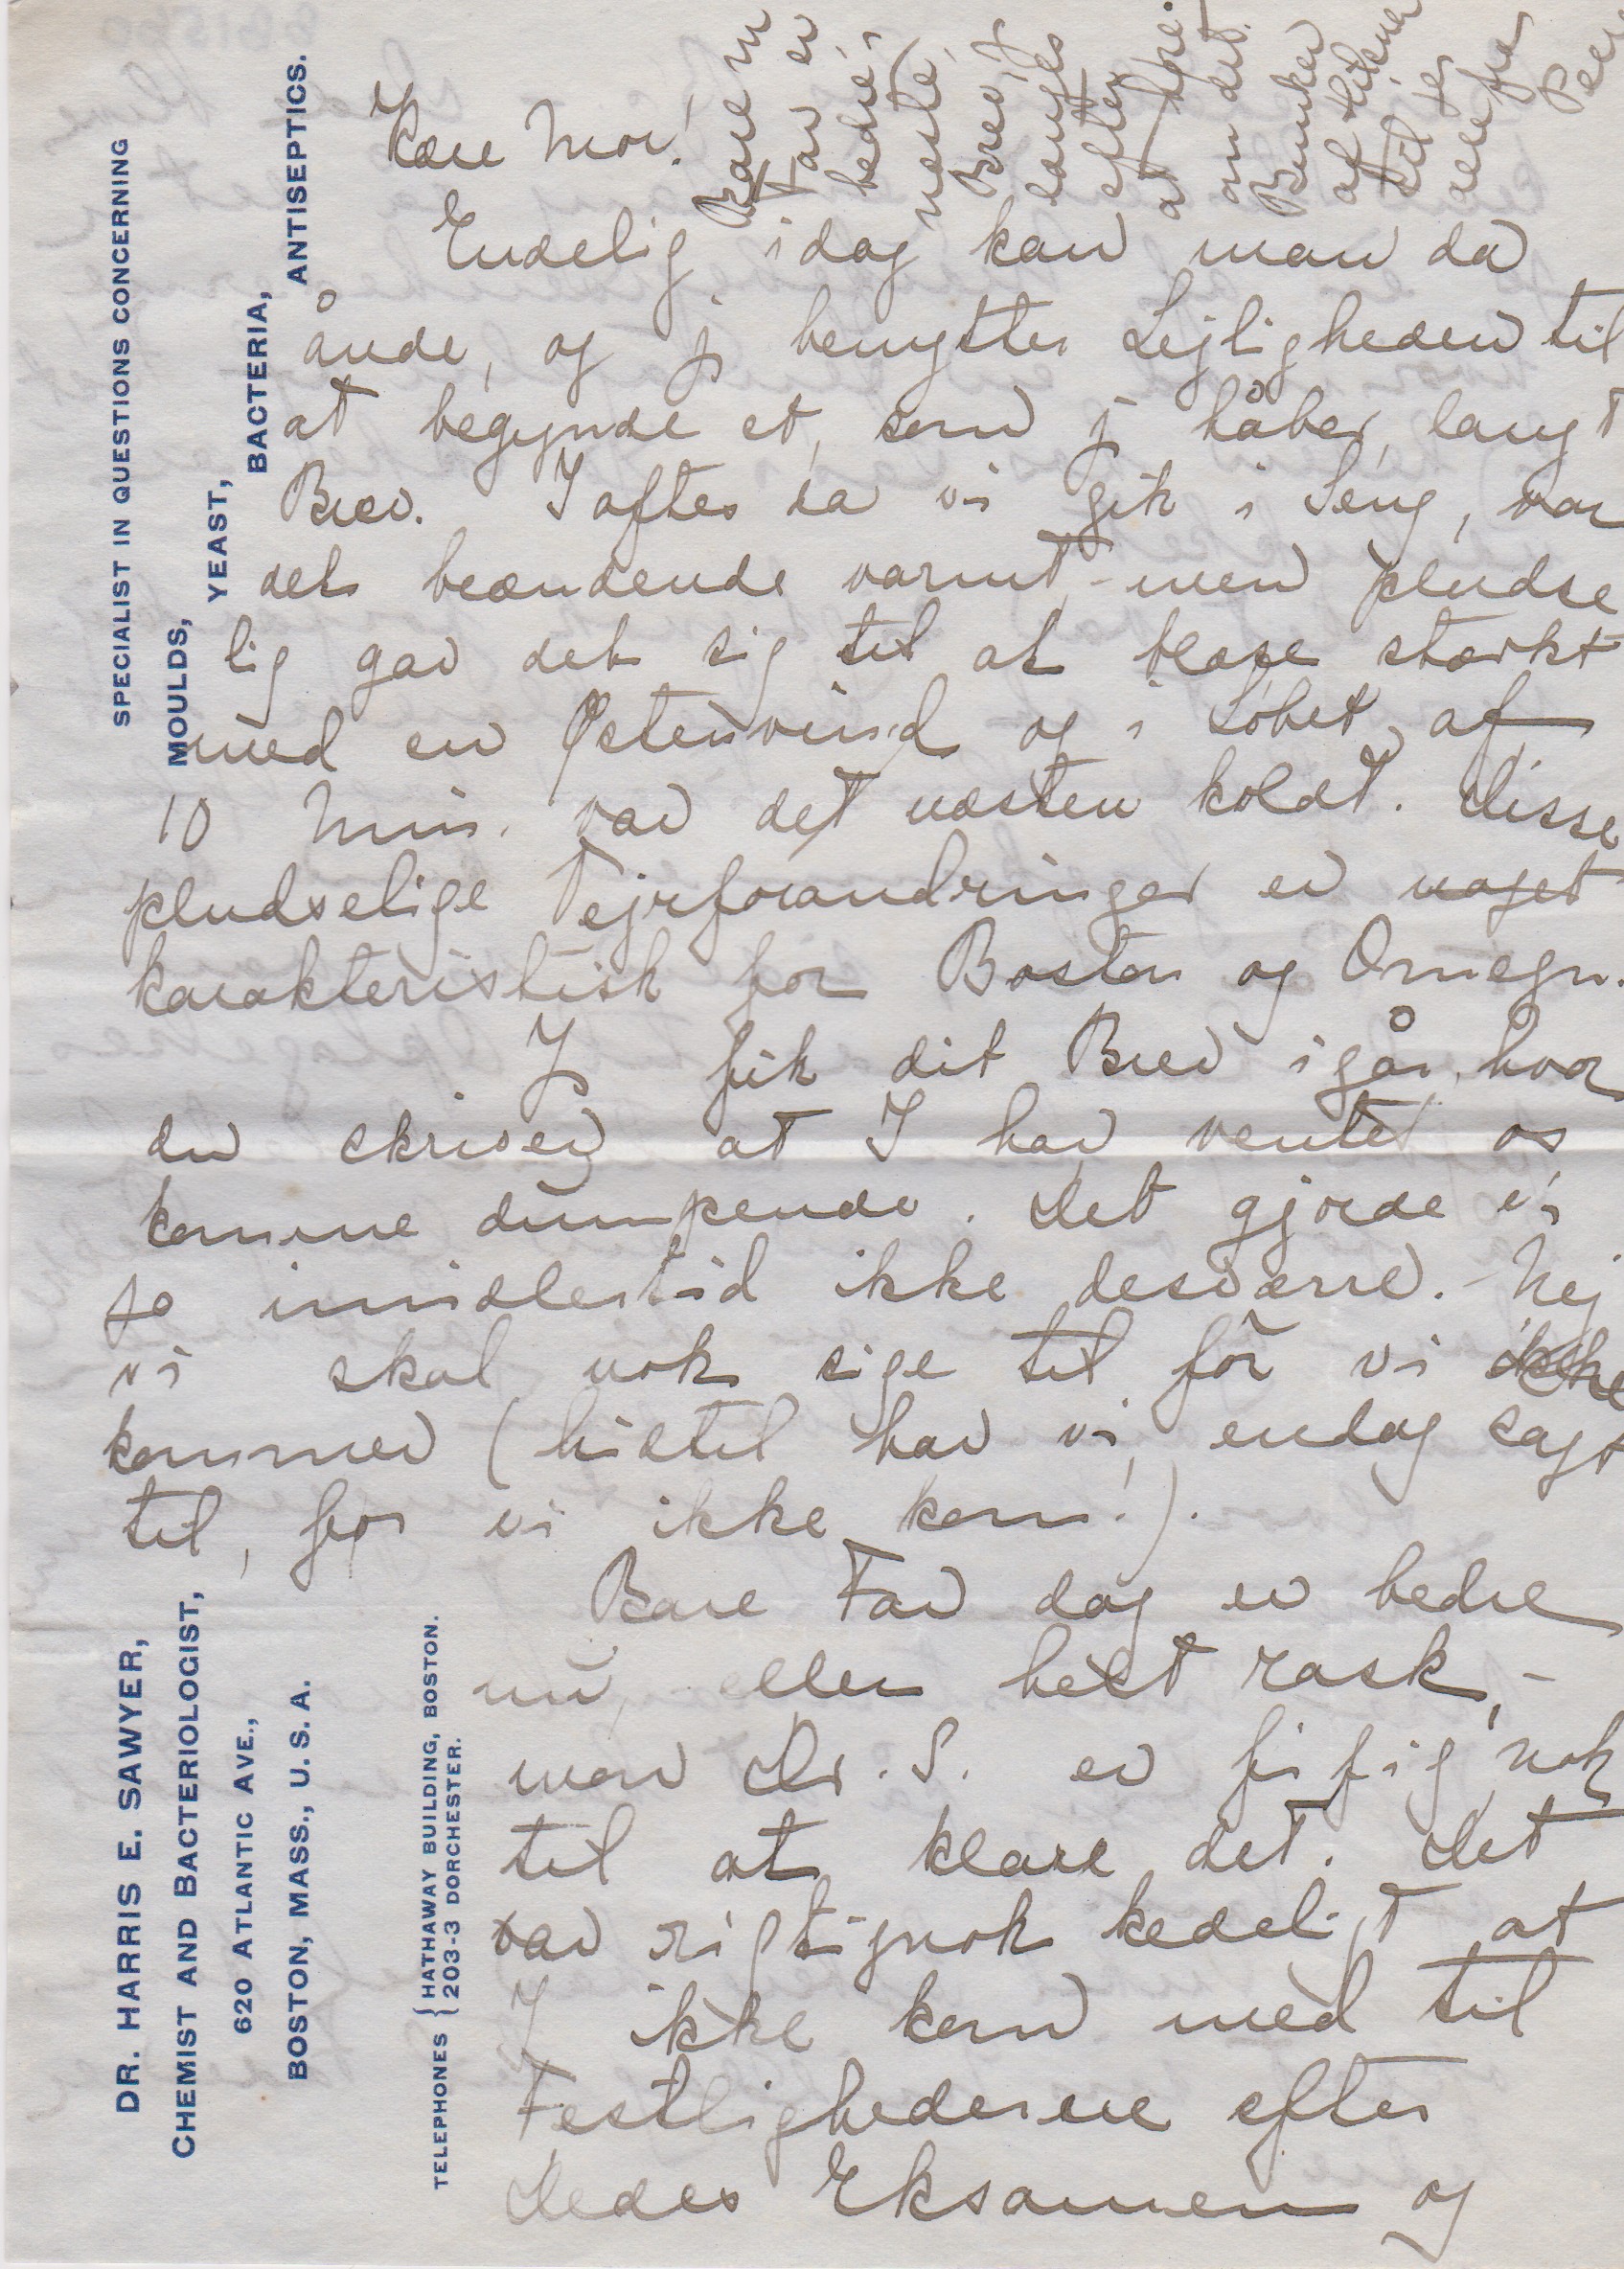 SPECIALIST IN QUESTIONS CONCERNING
MOULDS,
YEAST,
BACTERIA,
ANTISEPTICS.
DR. HARRIS E. SAWYER,
CHEMIST AND BACTERIOLOGIST,
620 ATLANTIC AVE.,
BOSTON, MASS., U. S. A.
TELEPHONES { HATHAWAY BUILDING, BOSTON.
203-3 DORCHESTER.
Kære Mor!
Endelig idag kan man da
ånde, og j benytter Lejligheden til
at begynde et, som j håber, langt
Brev. Iaftes da vi gik i Seng, var
det beændende varmt, - men pludse
lig gav det sig til at blæse stærkt
med en Østenvind og i Løbet af
10 Min. var det næsten koldt. Disse
pludselige Vejrforandringer er noget
karakteristisk for Boston og Omegn.
J fik dit Brev igår, hvor
du skriver at I har ventet os
komme dumpende. Det gjorde vi
jo imidlertid ikke desværre. - Nej
vi skal nok sige til før vi
kommer (hidtil har vi endog sagt
til, før vi ikke kom!).
Bare Far dog er bedre
nu, eller helt rask, -
men Dr. S. er fiffig nok
til at klare det. Det
var rigtignok kedeligt at
I ikke kom med til
Festlighederne efter
Dedes Eksamen og
Bare
Far er
bedre,
næste
Brev, j
længes
efter
at høre
om det.